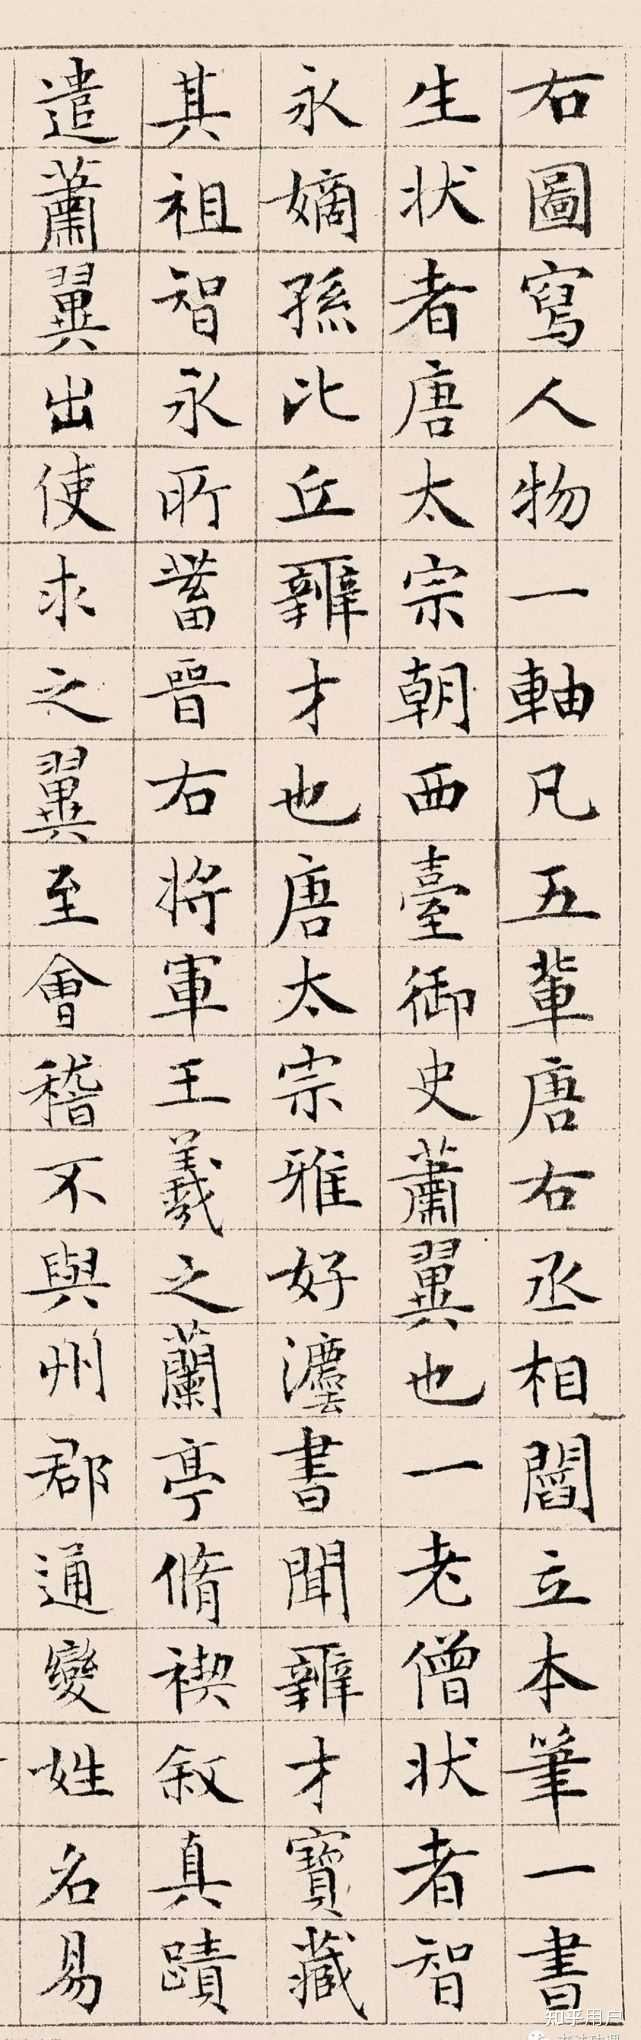 右圖寫人物一軸凡五輩唐右丞相閻立本筆一書
生狀者唐太宗朝西臺御史蕭翼也一老僧狀者智
永嫡孫比丘辨才也唐太宗雅好灋書聞辨才寶藏
其祖智永所蓄晉右將軍王羲之蘭亭脩禊敘真蹟
遣蕭翼出使求之翼至會稽不與州郡通變姓名易
知乎用户